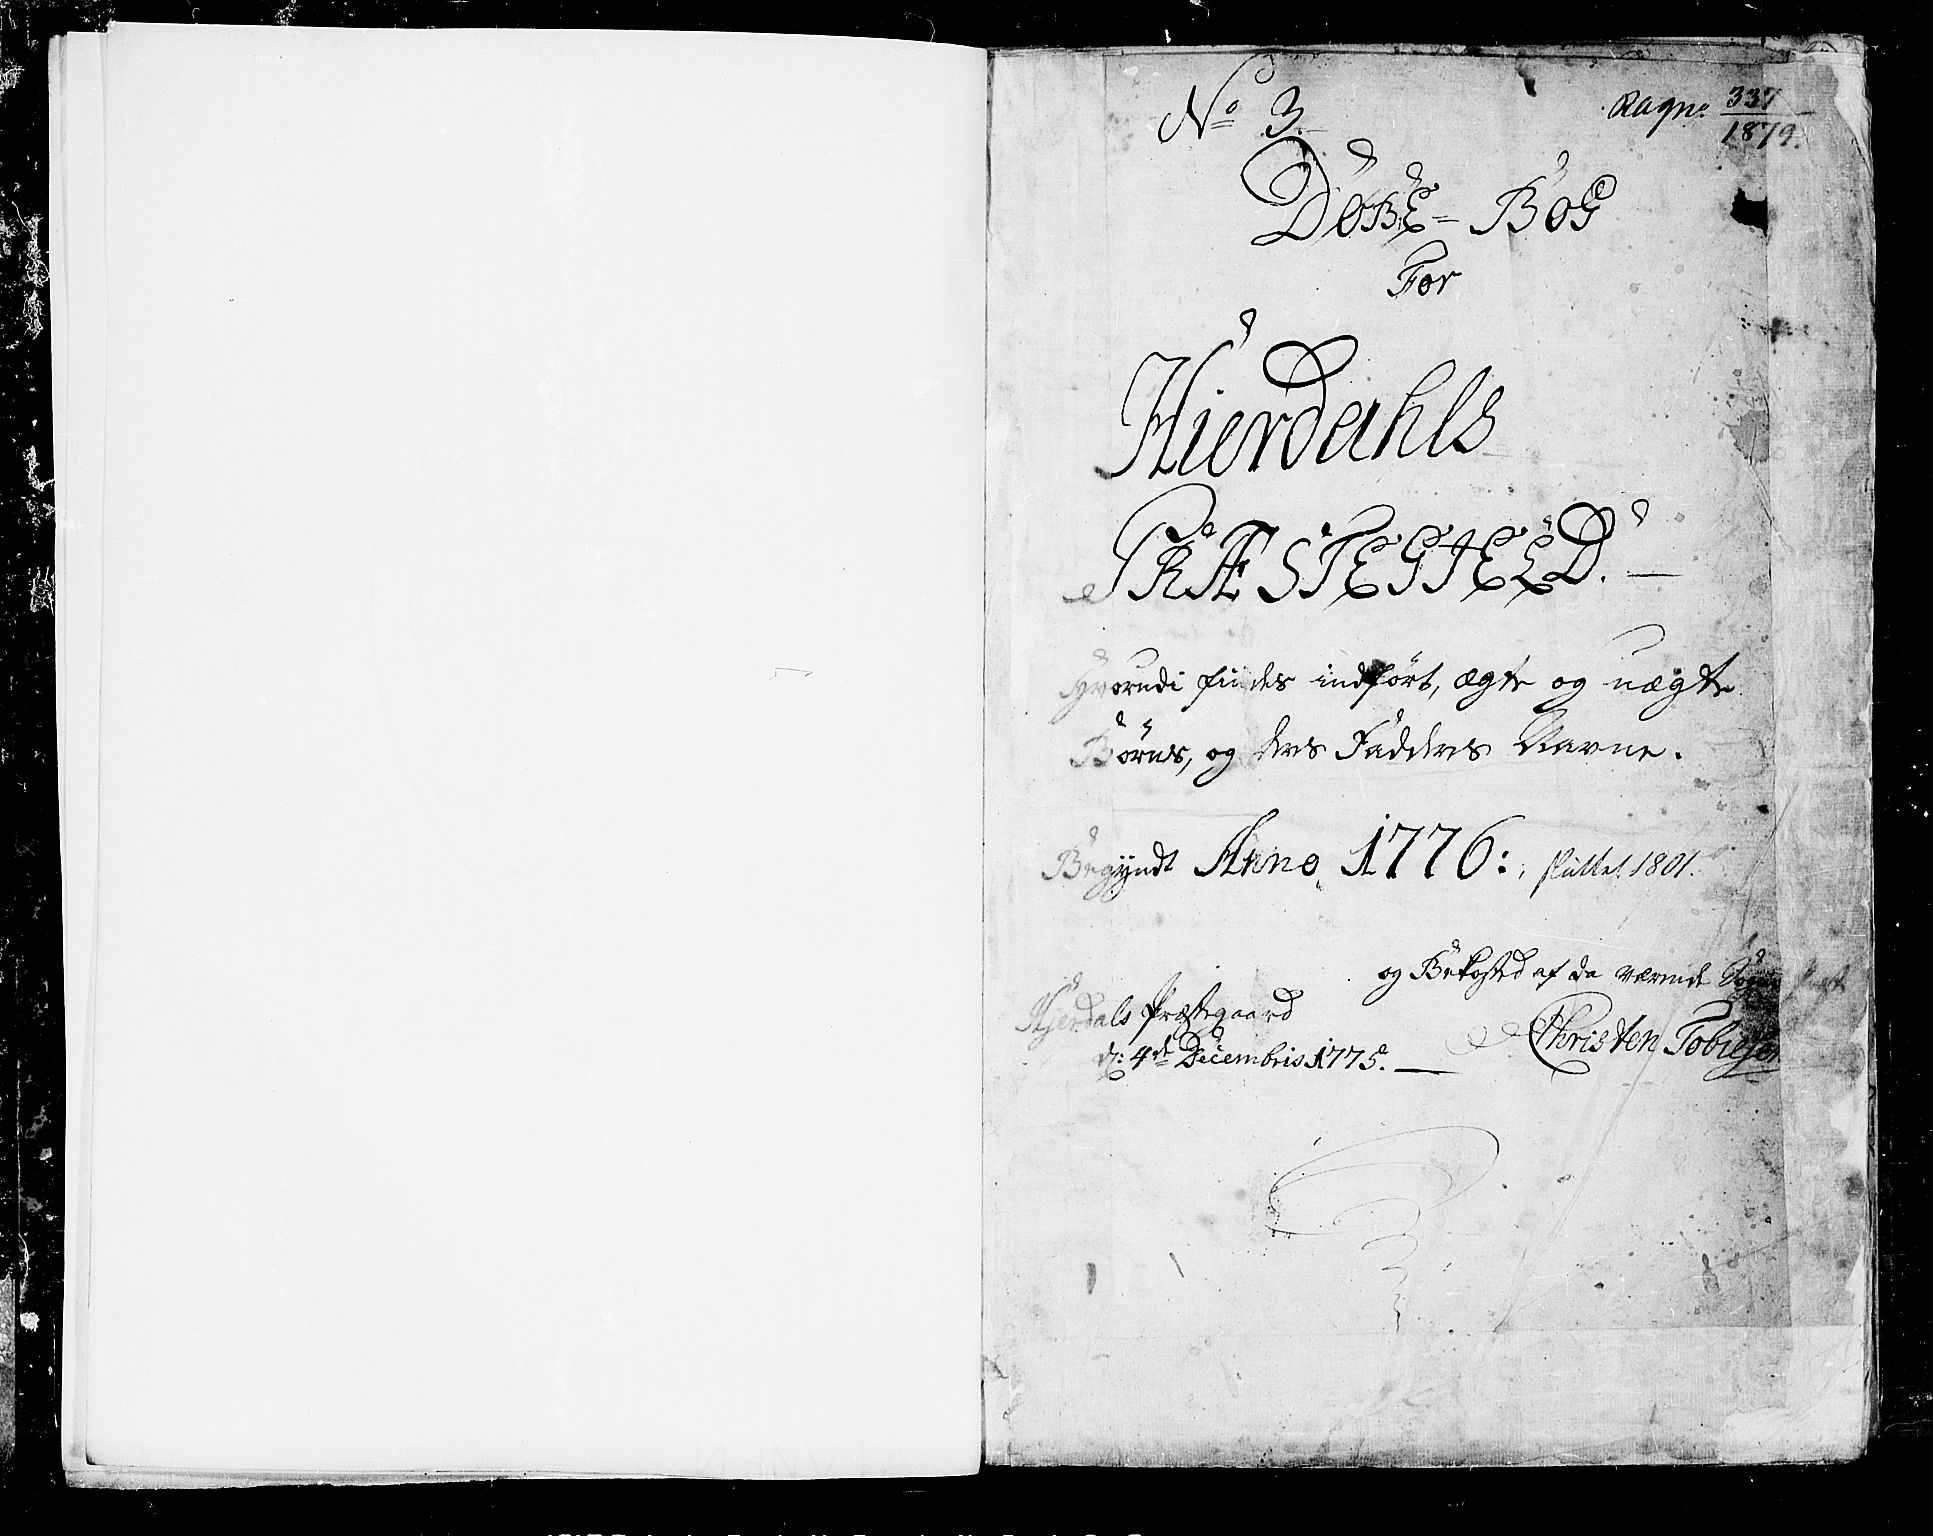 No 3.
Ragn. 337
1879.
DöBE-BoG
For
Hierdahls
PRÆSTEGIELD.
Hvorudi findes indført, ægte og uægte
Børns, og deres Fadderes Navne.
Begyndt Anno 1776: sluttet 1801.
og Bekosted af da værende Sogne Præst
Hjerdals Præstegaard
d: 4de Decembris 1775.
Christen Tobiesen